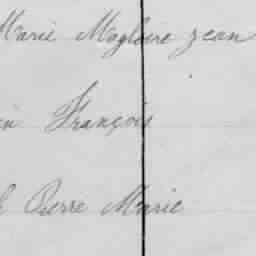 Marie Magloire jean
in François
l Pierre Marie